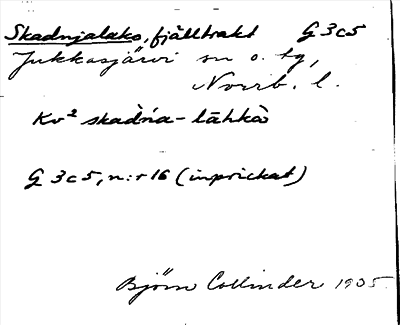 Skadnjalako, fjälltrakt G 3c5
Jukkasjärvi sn o. tg,
Norrb. l.
Kv² skad̀ńa-lāhkò
G 3c5, n:r 16 (inprickat)
Björn Collinder 1905